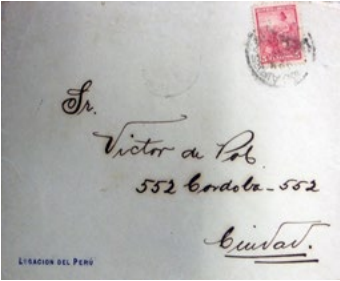 Sr.
Victor de Pol
552 Cordoba - 552
Ciudad.
LEGACION DEL PERÚ